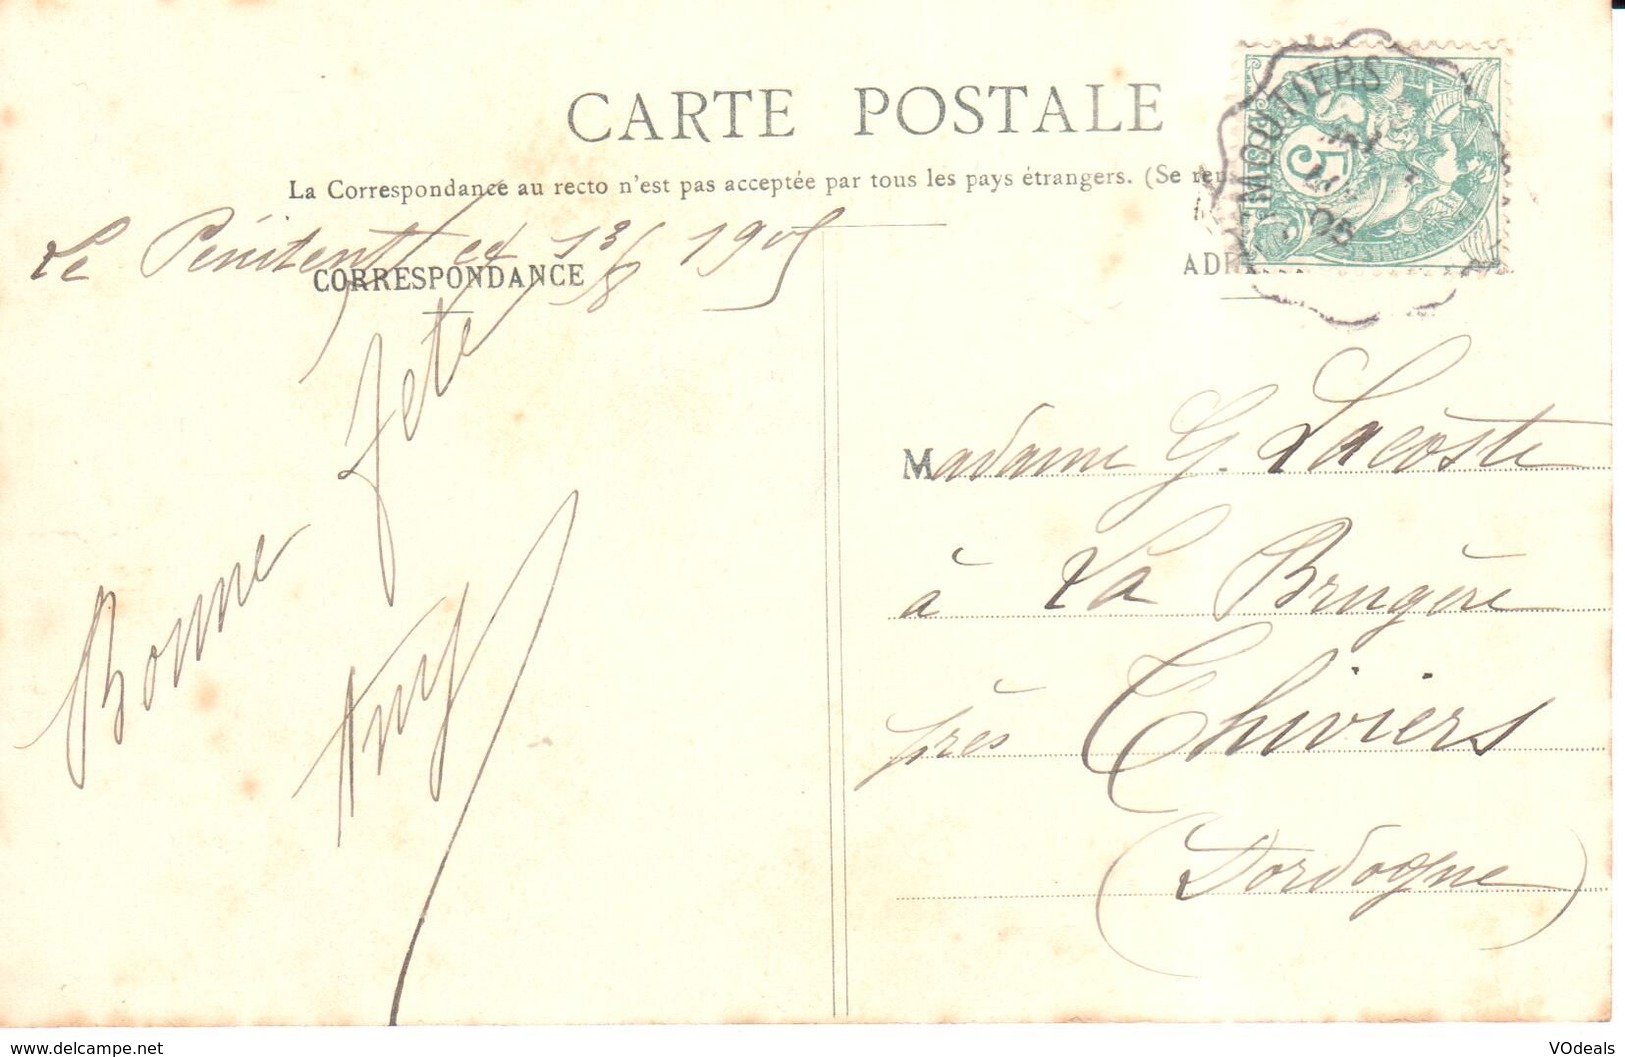 CARTE POSTALE
La Correspondance au recto n'est pas acceptée par tous les pays étrangers. (Se
Le Pénitent 13/8 1905
CORRESPONDANCE
MOUTIERS
5
05
Bonne fete
Madame G. Lacoste
à La Brugère
près Thiviers
(Dordogne)
www.delcampe.net
VOdeals